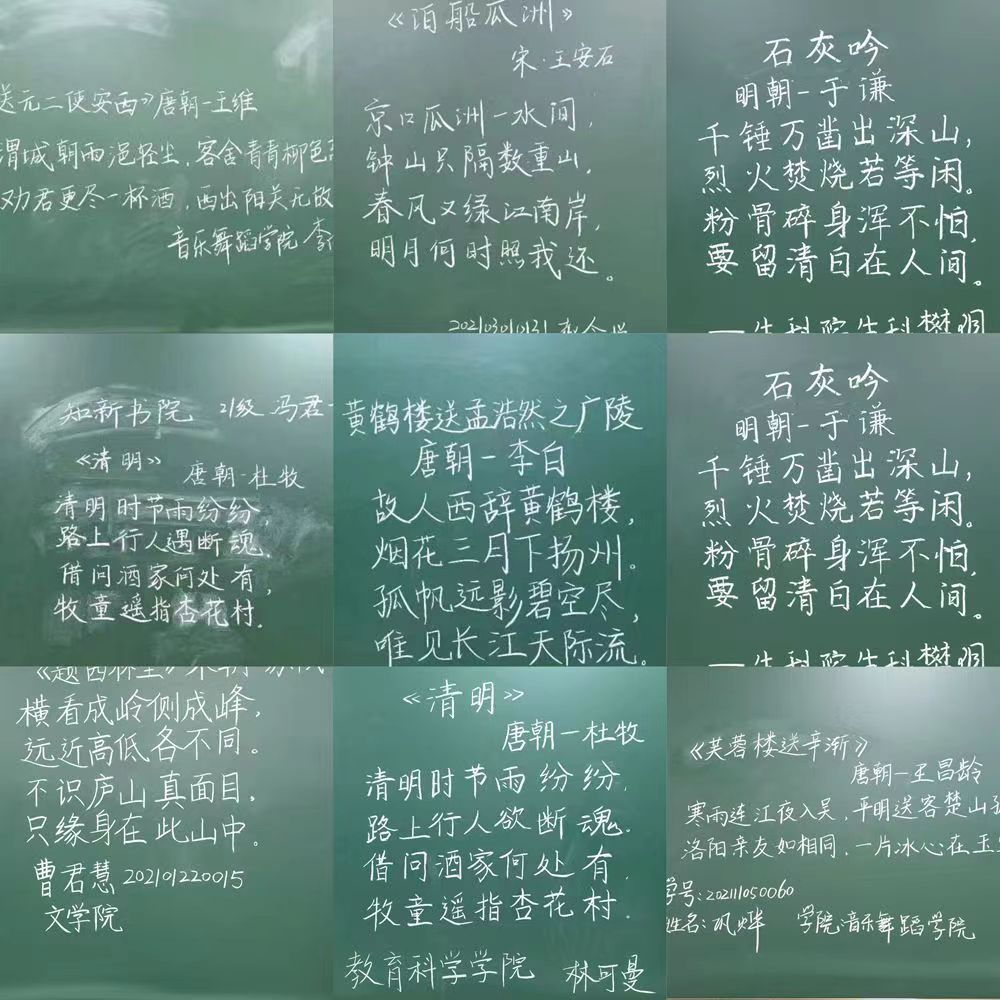 送元二使安西》唐朝-王维
渭城朝雨浥轻尘，客舍青青柳色
劝君更尽一杯酒，西出阳关无故
音乐舞蹈学院 李
《泊船瓜洲》
宋·王安石
京口瓜洲一水间，
钟山只隔数重山，
春风又绿江南岸，
明月何时照我还。
石灰吟
明朝-于谦
千锤万凿出深山，
烈火焚烧若等闲。
粉骨碎身浑不怕，
要留清白在人间。
知新书院 21级 冯君
《清明》
唐朝-杜牧
清明时节雨纷纷，
路上行人遇断魂.
借问酒家何处有，
牧童遥指杏花村.
黄鹤楼送孟浩然之广陵
唐朝-李白
故人西辞黄鹤楼，
烟花三月下扬州。
孤帆远影碧空尽，
唯见长江天际流。
石灰吟
明朝-于谦
千锤万凿出深山，
烈火焚烧若等闲。
粉骨碎身浑不怕，
要留清白在人间。
横看成岭侧成峰，
远近高低各不同。
不识庐山真面目，
只缘身在此山中。
曹君慧 202101220015
文学院
《清明》
唐朝-杜牧
清明时节雨纷纷，
路上行人欲断魂.
借问酒家何处有，
牧童遥指杏花村.
教育科学学院 林可曼
《芙蓉楼送辛渐》
唐朝-王昌龄
寒雨连江夜入吴，平明送客楚山
洛阳亲友如相同，一片冰心在玉
学号:202111050060
姓名:巩烨 学院:音乐舞蹈学院